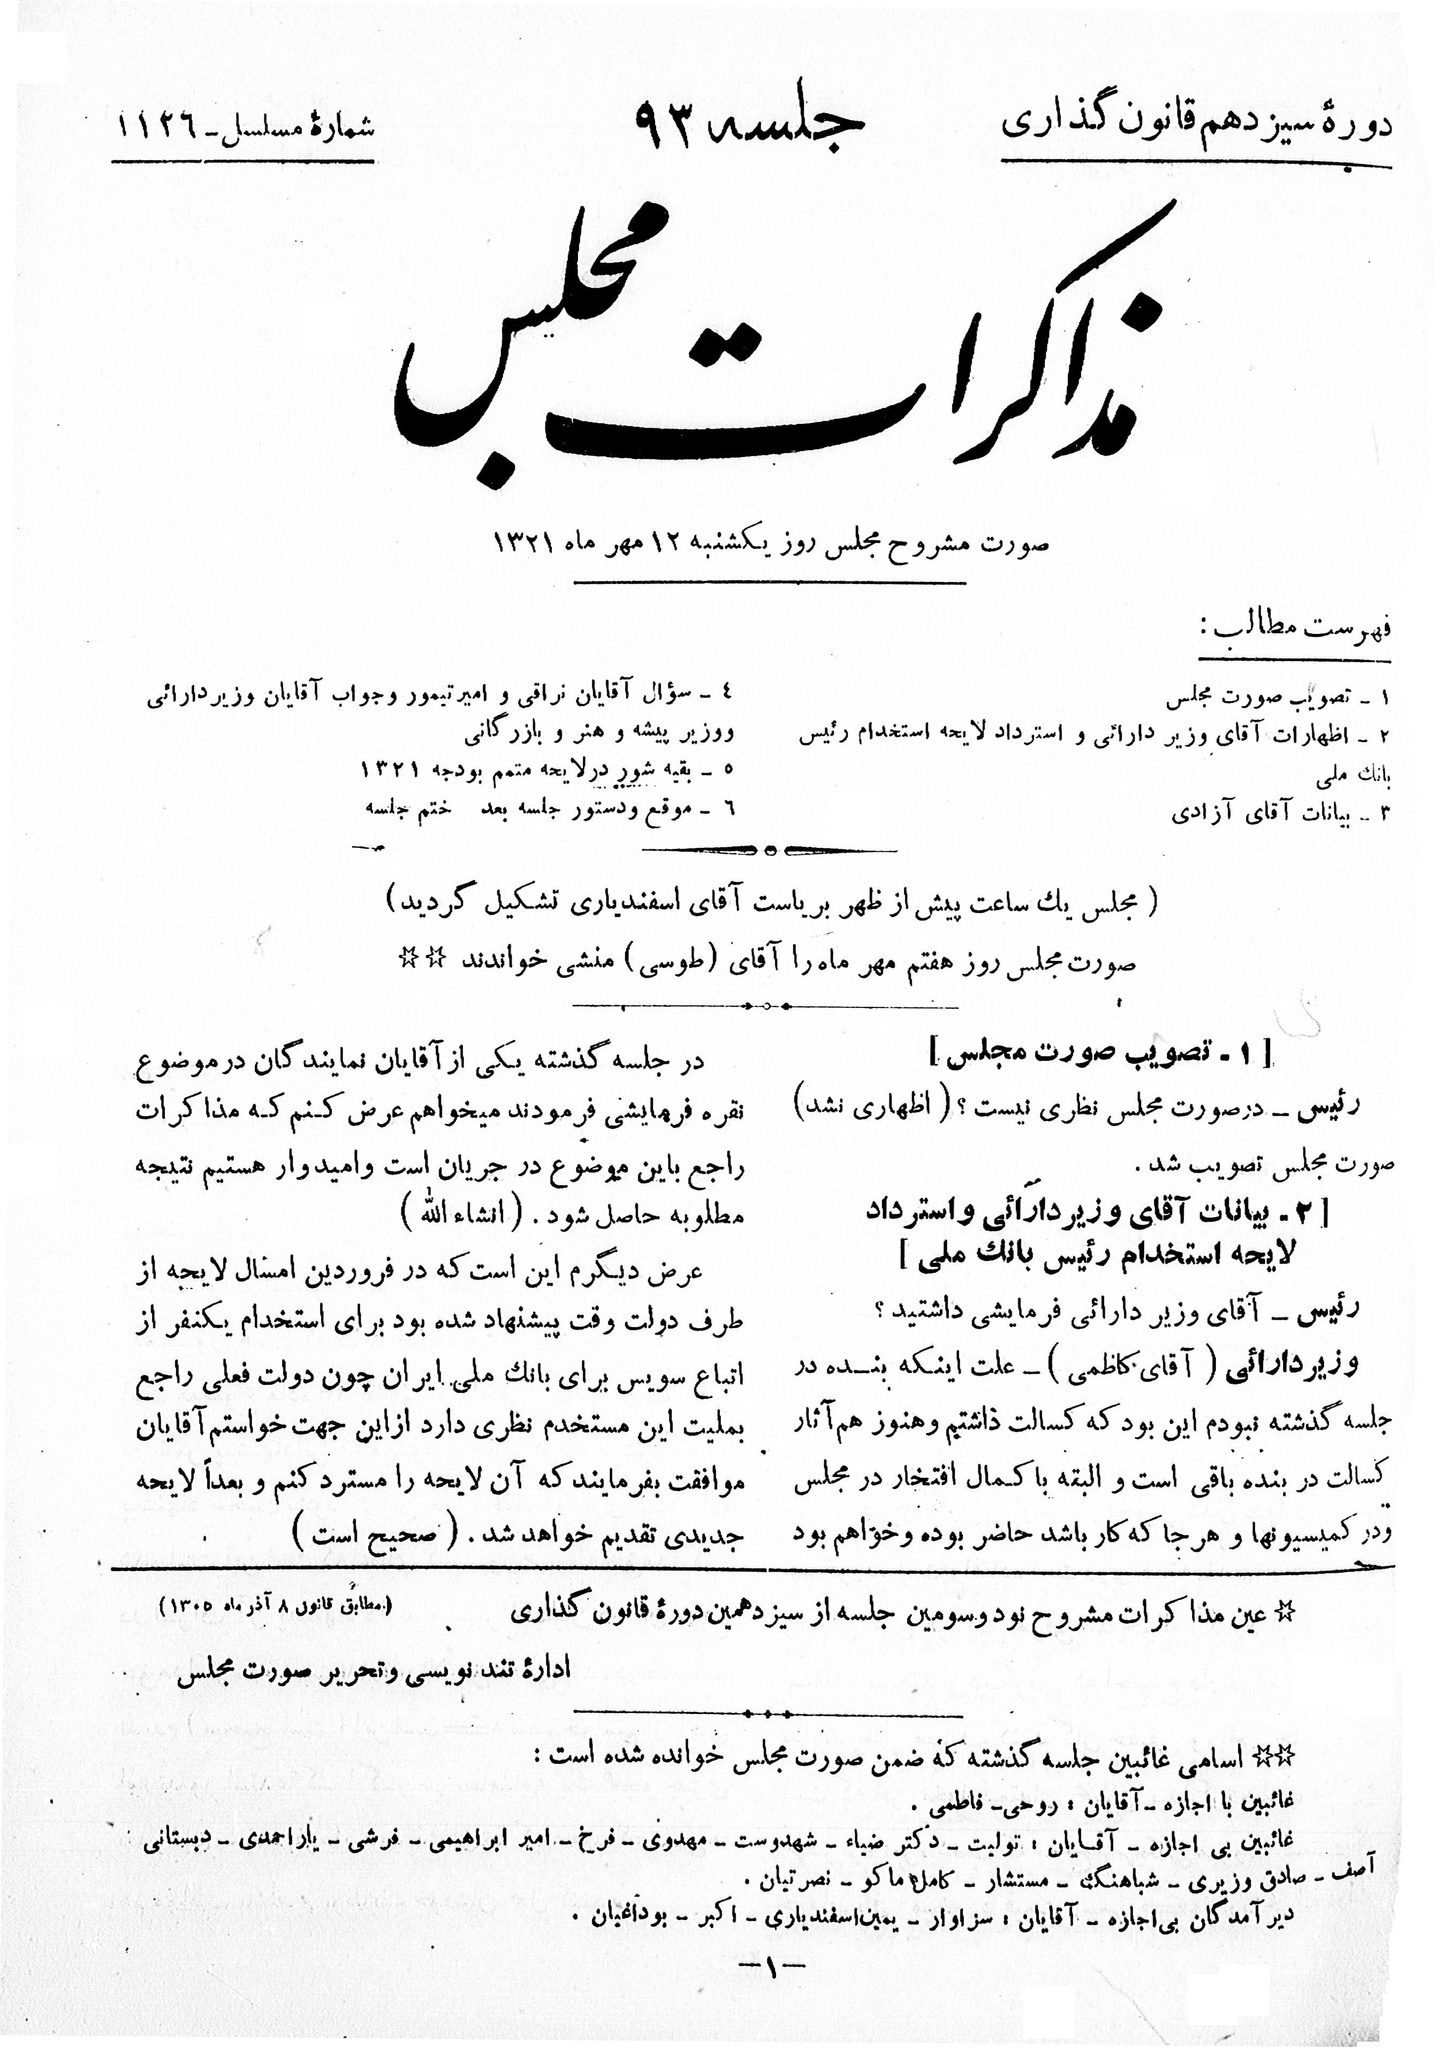 دورهٔ سیزدهم قانون گذاری
جلسه ۹۳
شمارهٔ مسلسل ـ ۱۱۲۶
مذاکرات مجلس
صورت مشروح مجلس روز یکشنبه ۱۲ مهر ماه ۱۳۲۱
فهرست مطالب :
۱ ـ تصویب صورت مجلس
۲ ـ اظهارات آقای وزیر دارائی و استرداد لایحه استخدام رئیس
بانك ملی
۳ ـ بیانات آقای آزادی
۴ ـ سؤال آقایان نراقی و امیرتیمور و جواب آقایان وزیردارائی
ووزیر پیشه و هنر و بازرگانی
۵ ـ بقیه شور درلایحه متمم بودجه ۱۳۲۱
۶ ـ موقع ودستور جلسه بعد ختم جلسه
( مجلس یك ساعت پیش از ظهر بریاست آقای اسفندیاری تشکیل گردید )
صورت مجلس روز هفتم مهر ماه را آقای (طوسی) منشی خواندند ☆☆
[ ۱ - تصویب صورت مجلس ]
رئیس ـ درصورت مجلس نظری نیست ؟ ( اظهاری نشد )
صورت مجلس تصویب شد .
[ ۲ - بیانات آقای وزیردارائی و استرداد
لایحه استخدام رئیس بانك ملی ]
رئیس ـ آقای وزیر دارائی فرمایشی داشتید ؟
وزیردارائی ( آقای کاظمی ) ـ علت اینکه بنده در
جلسه گذشته نبودم این بود که کسالت داشتم وهنوز هم آثار
کسالت در بنده باقی است و البته با کمال افتخار در مجلس
ودر کمیسیونها و هر جا که کار باشد حاضر بوده وخواهم بود
در جلسه گذشته یکی از آقایان نمایندگان درموضوع
نقره فرمایشی فرمودند میخواهم عرض کنم که مذاکرات
راجع باین موضوع در جریان است وامیدوار هستیم نتیجه
مطلوبه حاصل شود . ( انشاء الله )
عرض دیگرم این است که در فروردین امسال لایحه از
طرف دولت وقت پیشنهاد شده بود برای استخدام یکنفر از
اتباع سویس برای بانك ملی ایران چون دولت فعلی راجع
بملیت این مستخدم نظری دارد ازاین جهت خواستم آقایان
موافقت بفرمایند که آن لایحه را مسترد کنم و بعداً لایحه
جدیدی تقدیم خواهد شد . ( صحیح است )
☆ عین مذاکرات مشروح نود وسومین جلسه از سیزدهمین دورهٔ قانون گذاری
(مطابق قانون ۸ آذر ماه ۱۳۰۵)
ادارهٔ تند نویسی وتحریر صورت مجلس
☆☆ اسامی غائبین جلسه گذشته که ضمن صورت مجلس خوانده شده است :
غائبین با اجازه ـ آقایان : روحی ـ فاطمی .
غائبین بی اجازه ـ آقایان : تولیت ـ دکتر ضیاء ـ شهدوست ـ مهدوی ـ فرخ ـ امیر ابراهیمی ـ فرشی ـ یاراحمدی ـ دبستانی
آصف ـ صادق وزیری ـ شباهنگ ـ مستشار ـ کامل ماکو ـ نصرتیان .
دیرآمدگان بی اجازه ـ آقایان : سزاوار ـ یمین اسفندیاری ـ اکبر ـ بوداغیان .
—۱—